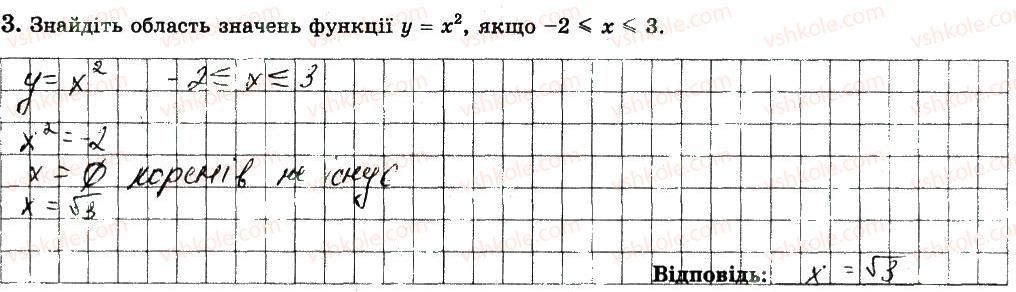 3. Знайдіть область значень функції y = x², якщо −2 ⩽ x ⩽ 3.
y = x² −2 ≤ x ≤ 3
x² = −2
x = ∅ коренів не існує
x = √3
Відповідь: x = √3